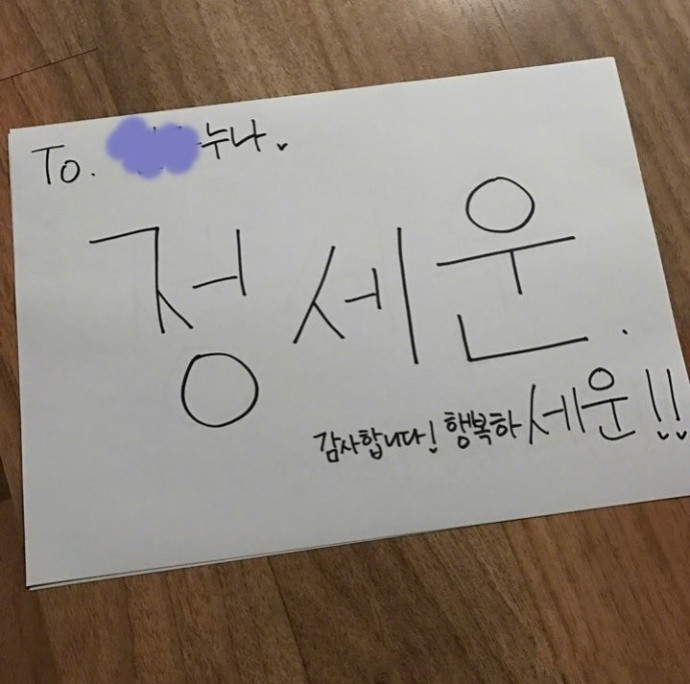 To. 누나.
정세운.
감사합니다! 행복하세운!!